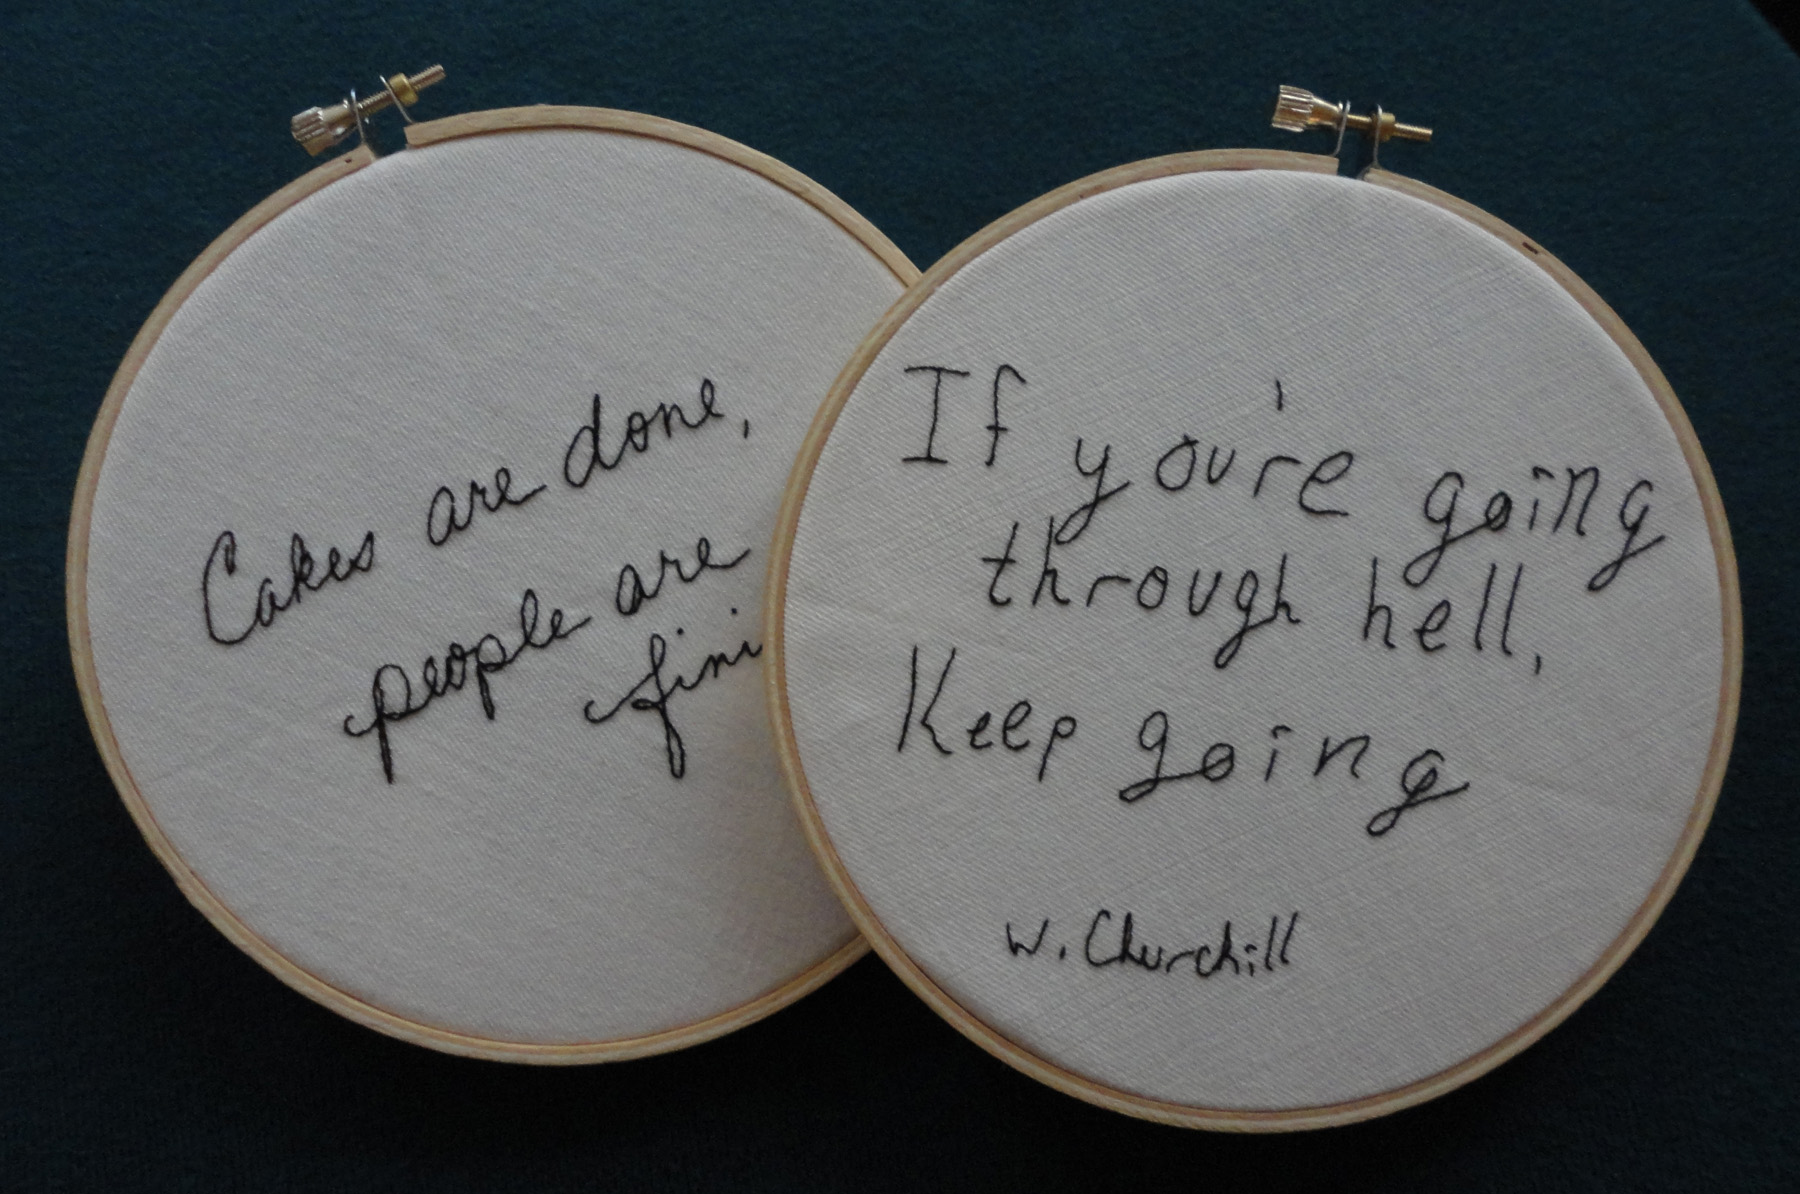 Cakes are done,
people are
fini
If you're going
through hell,
Keep going
W. Churchill